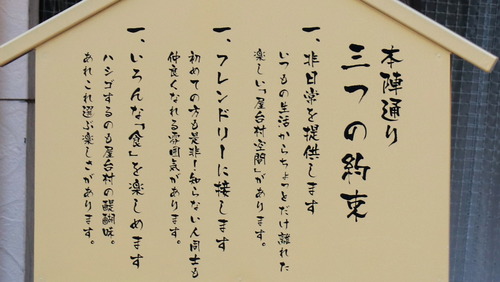 本陣通り
三つの約束
一、非日常を提供します
いつもの生活からちょっとだけ離れた
楽しい「屋台村空間」があります。
一、フレンドリーに接します
初めての方も是非!知らない人同士も
仲良くなれる雰囲気があります。
一、いろんな「食」を楽しめます
ハシゴするのも屋台村の醍醐味。
あれこれ選ぶ楽しさがあります。